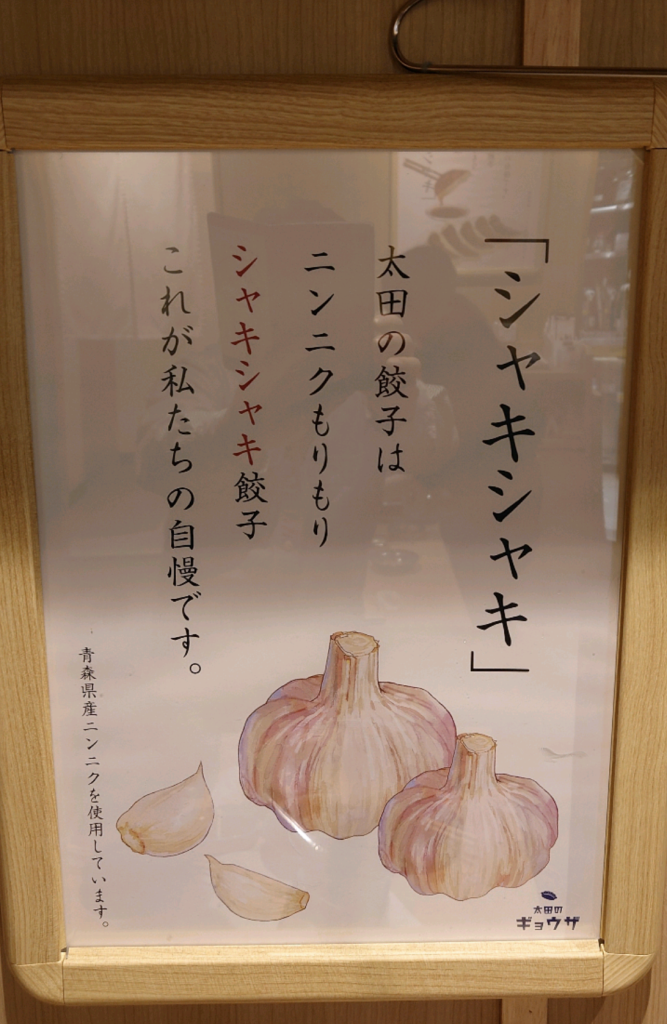 「シャキシャキ」
太田の餃子は
ニンニクもりもり
シャキシャキ餃子
これが私たちの自慢です。
青森県産ニンニクを使用しています。
太田の
ギョウザ